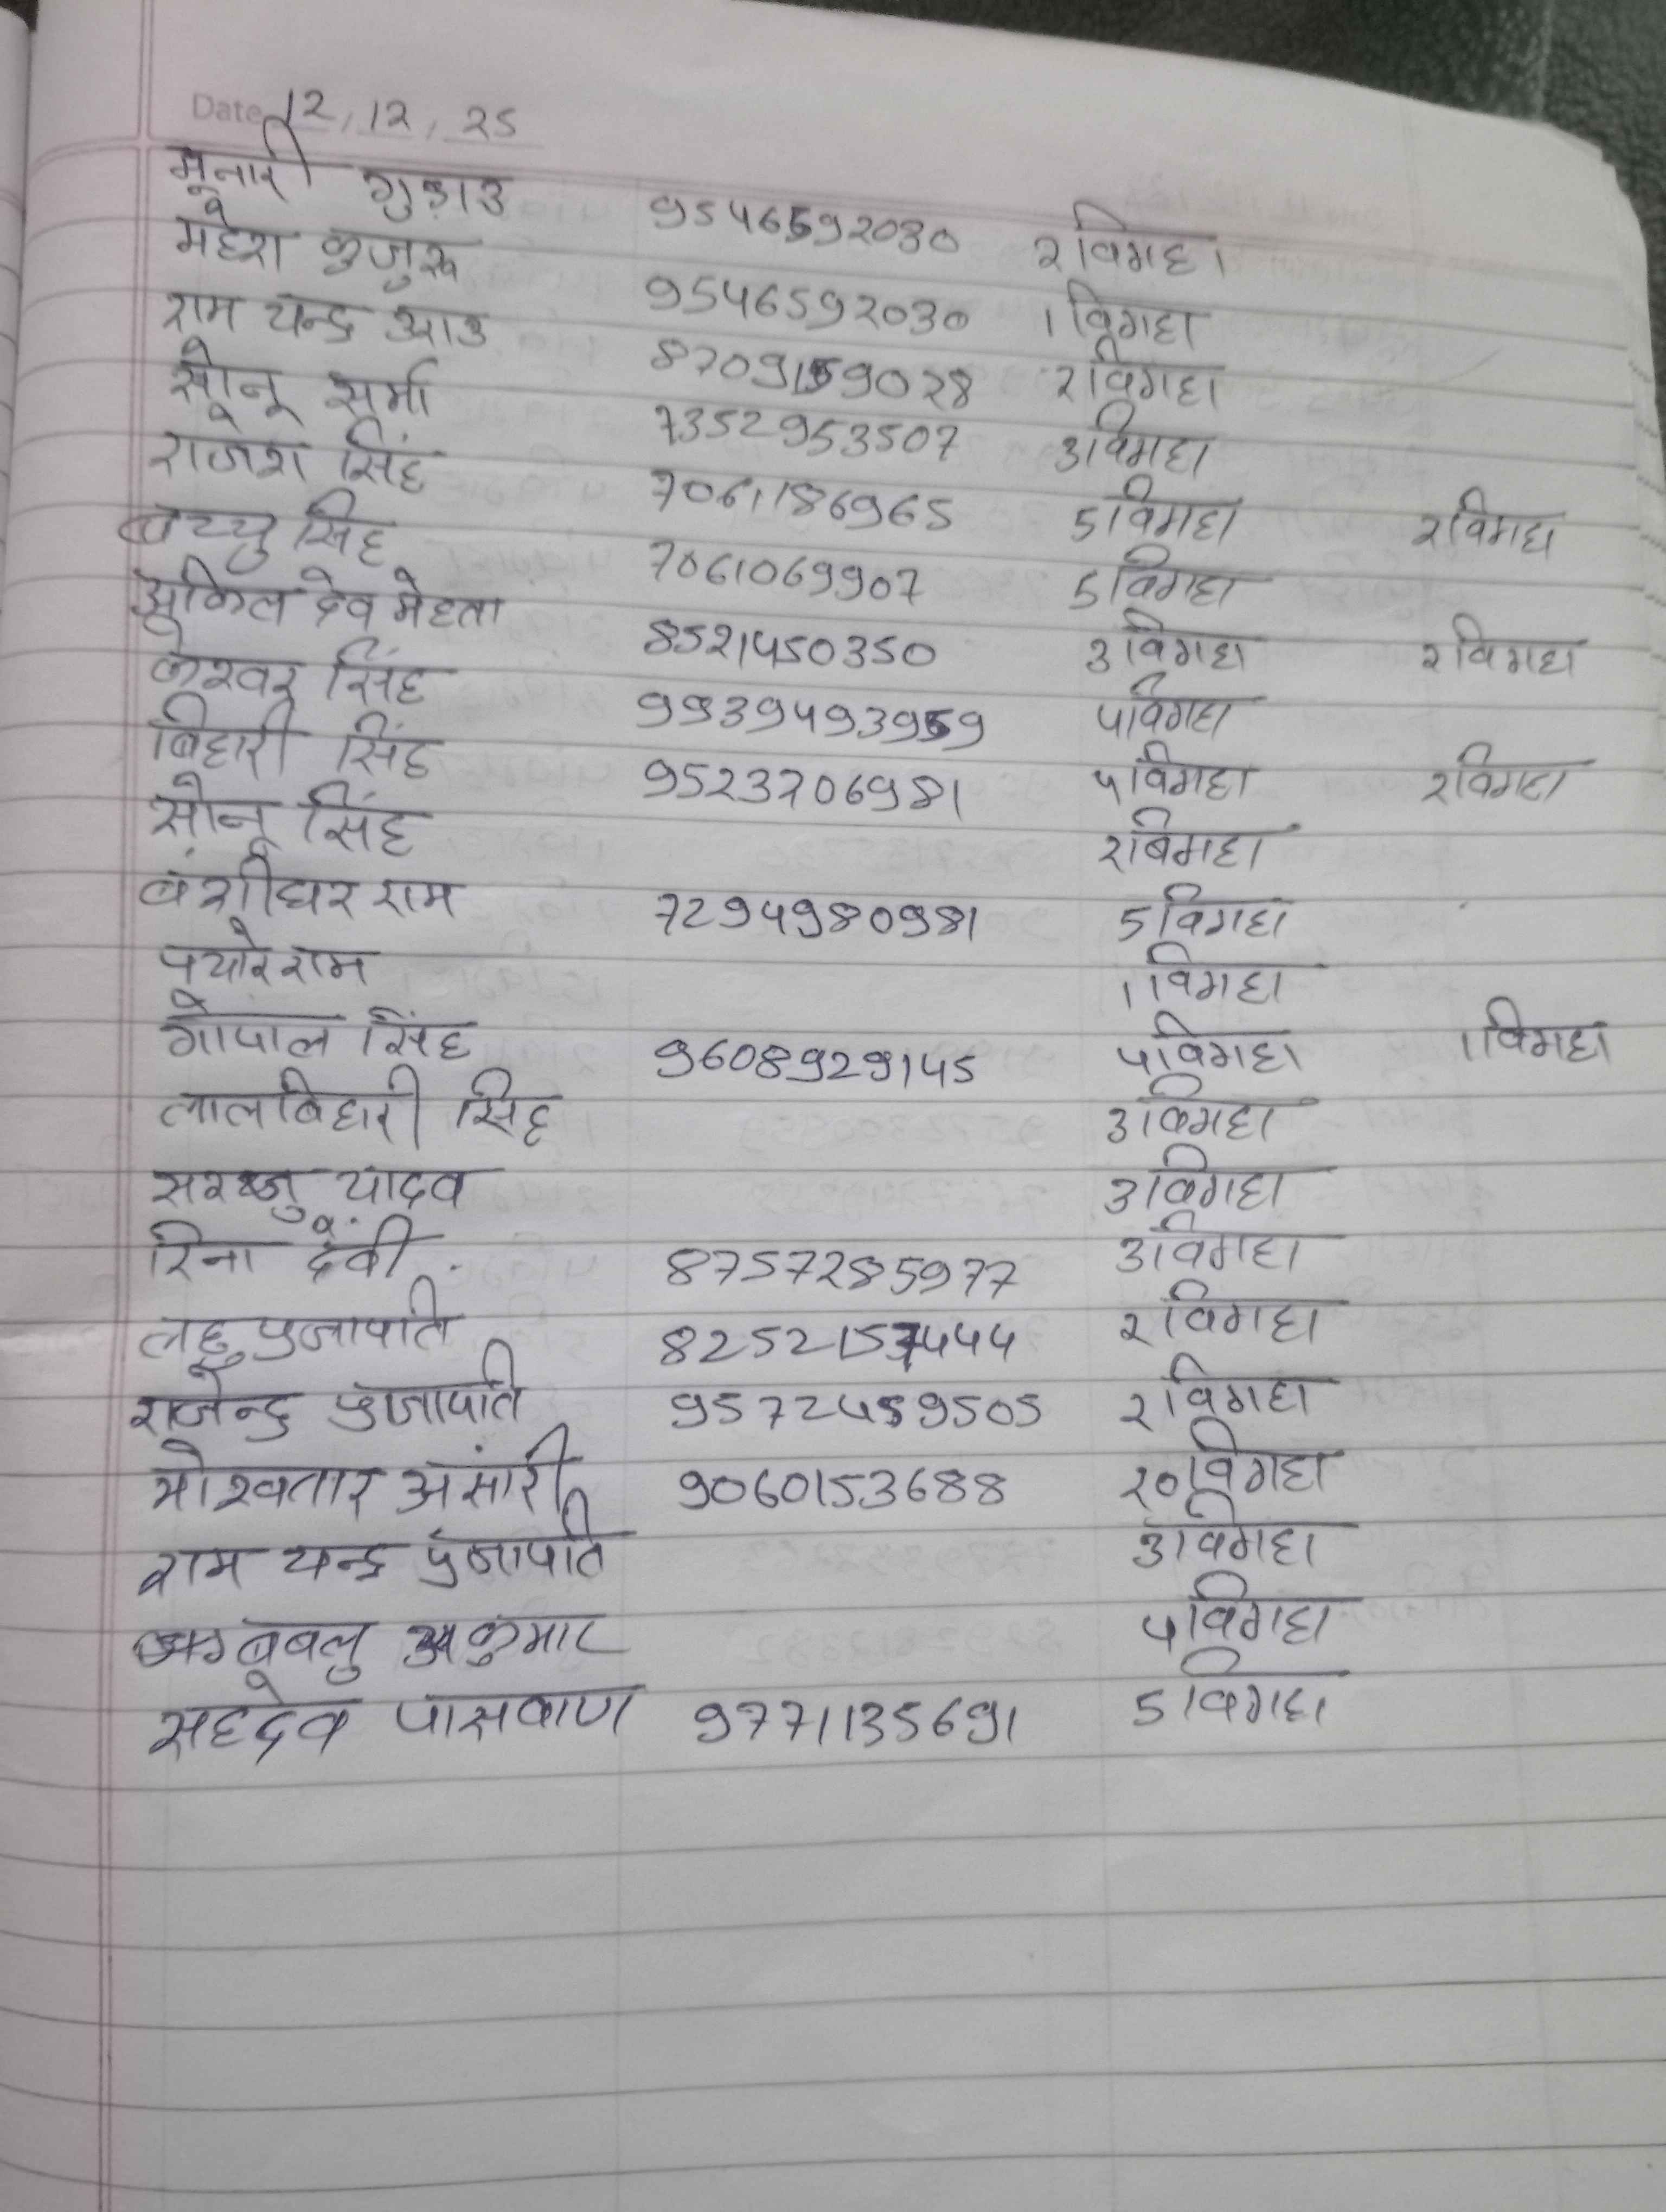 Date 12, 12, 25
मूनारी गुडाउ 9546592030 २विगहा
महेश कुजुरू 9546592030 1विगहा
राम चन्द्र आउ 8709159028 २विगहा
सोनू सर्मा 7352953507 3विगहा
राजेश सिंह 7061186965 5विगहा २विगहा
बच्चु सिंह 7061069907 5विगहा
अकिल देव मेहता 8521450350 3विगहा २विगहा
केश्वर सिंह 9939493959 ५विगहा
बिहारी सिंह 9523706981 ५विगहा २विगहा
सोनू सिंह २बिगहा
बंशीधर राम 7294980981 5विगहा
पयारेराम 1विगहा
गोपाल सिंह 9608929145 ५विगहा 1विगहा
लालबिहारी सिंह 3विगहा
सरजु यादव 3विगहा
रिना देवी 8757285977 3विगहा
लहु प्रजापति 8252157444 २विगहा
राजेन्द्र प्रजापति 9572459505 २विगहा
मोखतार अंसारी 9060153688 २०विगहा
राम चन्द्र प्रजापति 3विगहा
बबलु कुमार ५विगहा
सहदेव पासवाण 9771135691 5विगहा